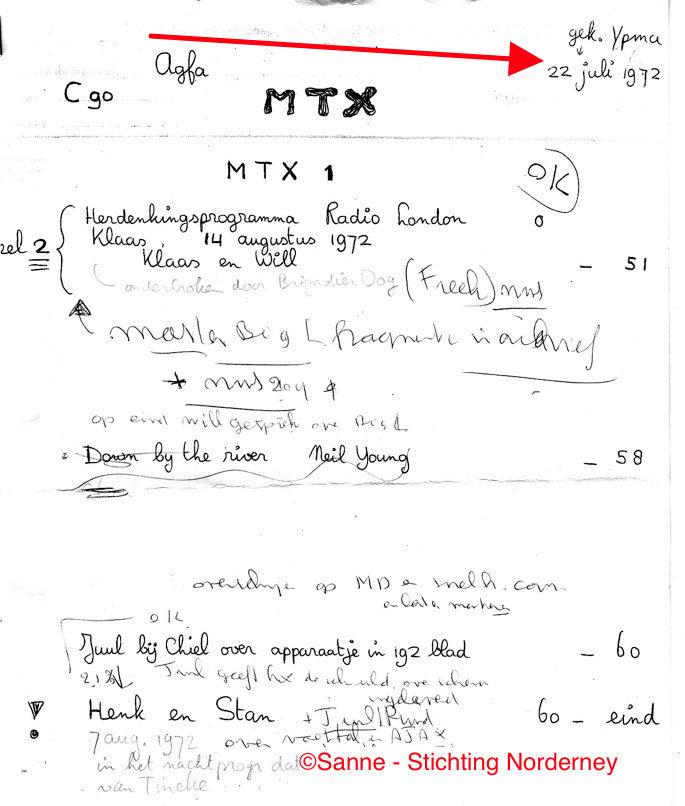 gek. Ypma
22 juli 1972
Agfa
C 90
MTX
MTX 1
OK
Herdenkingsprogramma Radio London
Klaas, 14 augustus 1972
zel 2
Klaas en Will
- 51
onderbroken door Brigadier Dog (Freek) nws
master Big L fragmenten in archief
* nws 2014
op eind Will gesprek over Big L
Down by the river Neil Young
- 58
overschrijf op MD
OK
Juul bij Chiel over apparaatje in 192 blad
- 60
Juul geeft de schuld, over
Henk en Stan + Juul/Ruud
60 - eind
7 aug. 1972 over voetbal AJAX
in het nachtprogr dat
van Tineke
©Sanne - Stichting Norderney